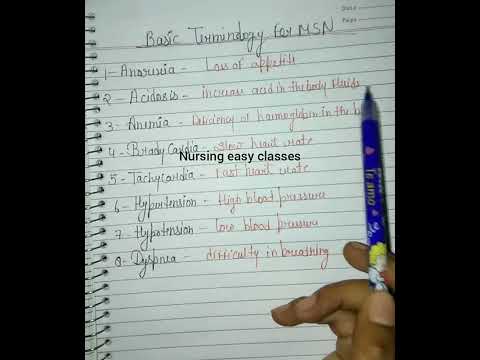 Date
Page
Basic Terminology For MSN
1- Anorexia - Loss of appetite
2- Acidosis - increase acid in the body fluids
3- Anemia - Deficiency of haemoglobin in the b
4- Bradycardia - slow heart rate
Nursing easy classes
5- Tachycardia - fast heart rate
6- Hypertension - High blood pressure
7- Hypotension - low blood pressure
8- Dyspnea - difficulty in breathing
Te amo